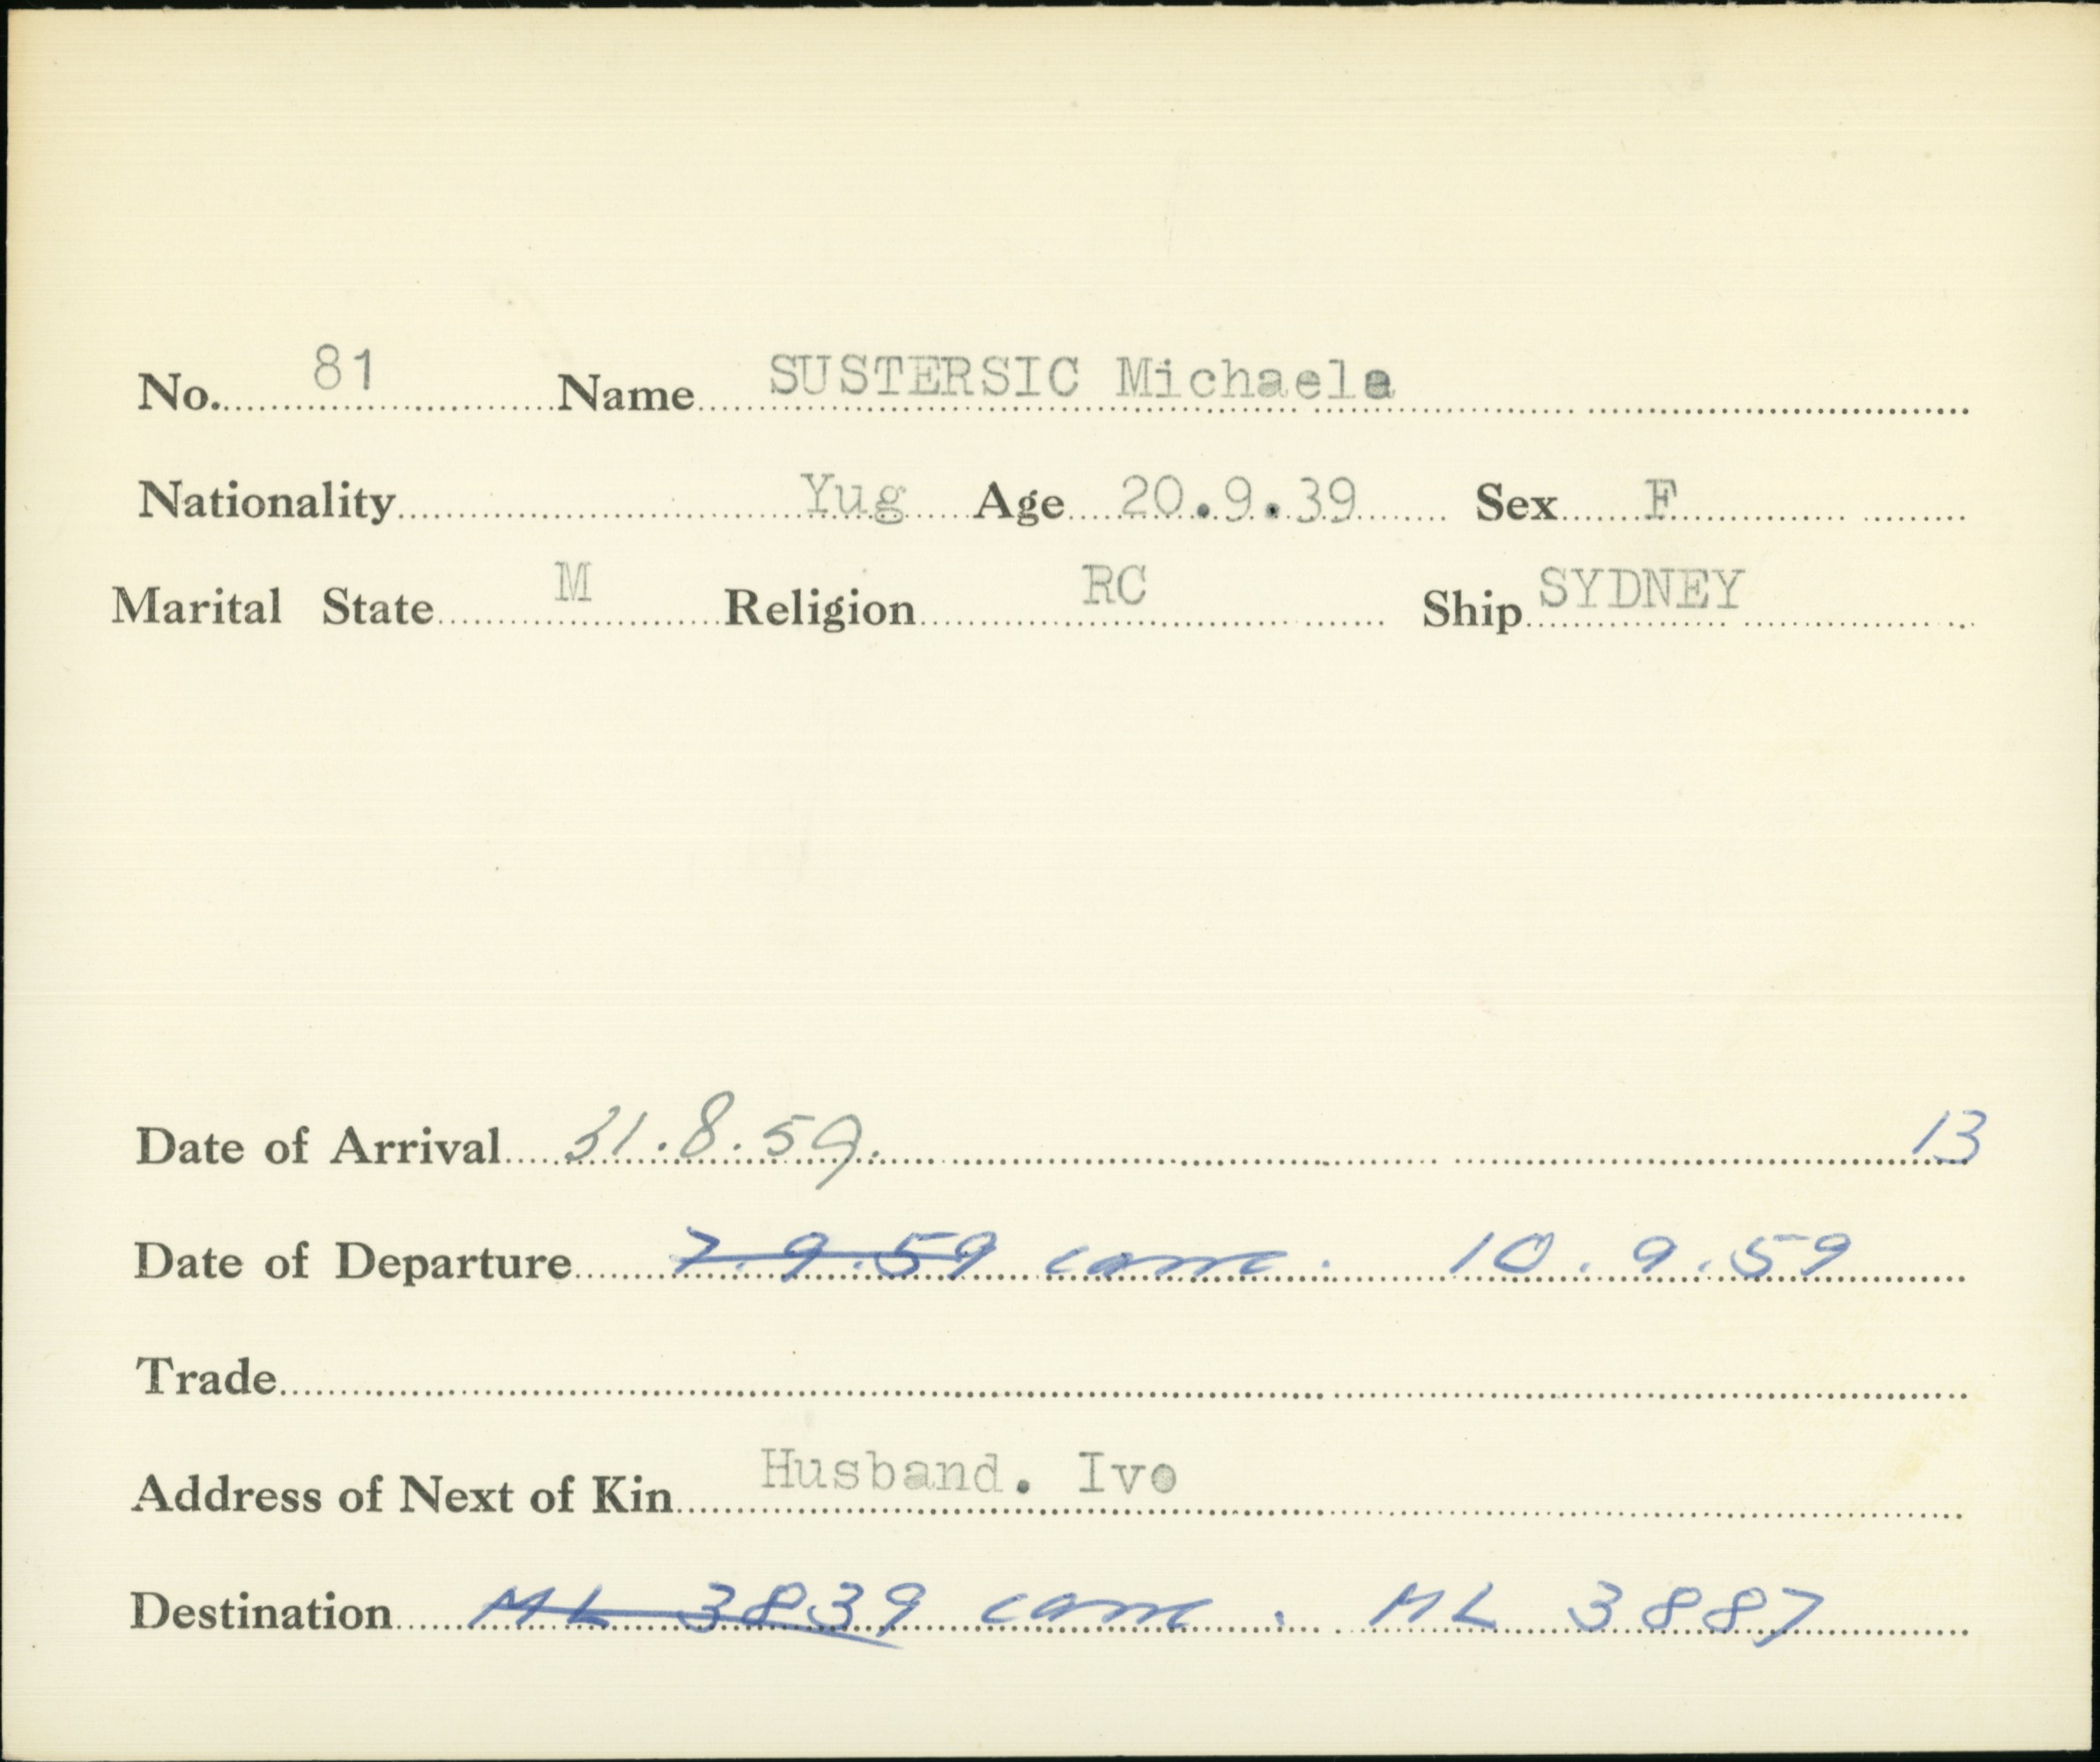 No. 81 Name SUSTERSIC Michaela
Nationality Yug Age 20.9.39 Sex F
Marital State M Religion RC Ship SYDNEY
Date of Arrival 31.8.59. 13
Date of Departure 7.9.59 canc. 10.9.59
Trade
Address of Next of Kin Husband. Ivo
Destination ML 3839 canc. ML 3887